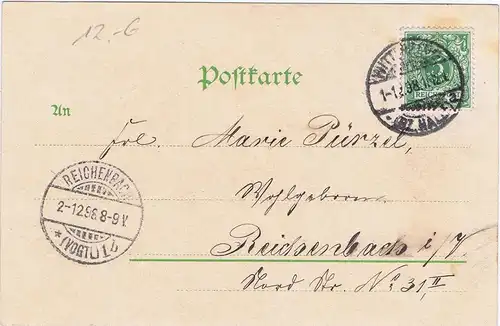 12.-G
Postkarte
An
Frl. Marie Pürzel,
Wohlgeboren
Reichenbach i/V.
Nord Str. No 31, II
REICHENBACH
2-12.98.8-9V.
* (VOGTL.) *
1-12.98.
(BZ. HALLE)
REICHSPOST
5